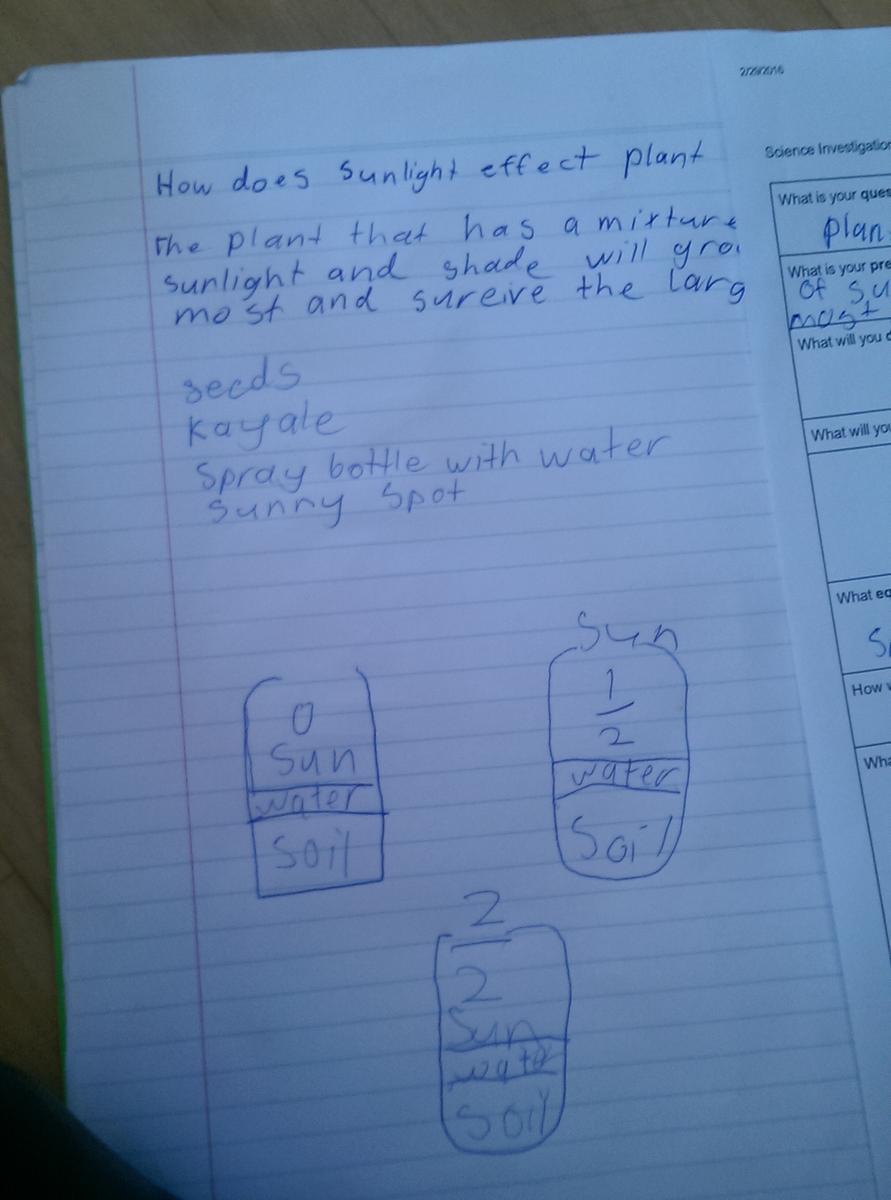 2/29/2016
How does sunlight effect plant
The plant that has a mixture
sunlight and shade will grow
most and sureive the larg
seeds
Kayale
Spray bottle with water
Sunny Spot
0
Sun
water
Soil
Sun
1
2
water
Soil
2
2
Sun
water
Soil
Science Investigation
What is your ques
plan
What is your pre
of su
most
What will you d
What will you
What eq
S
How w
Wha